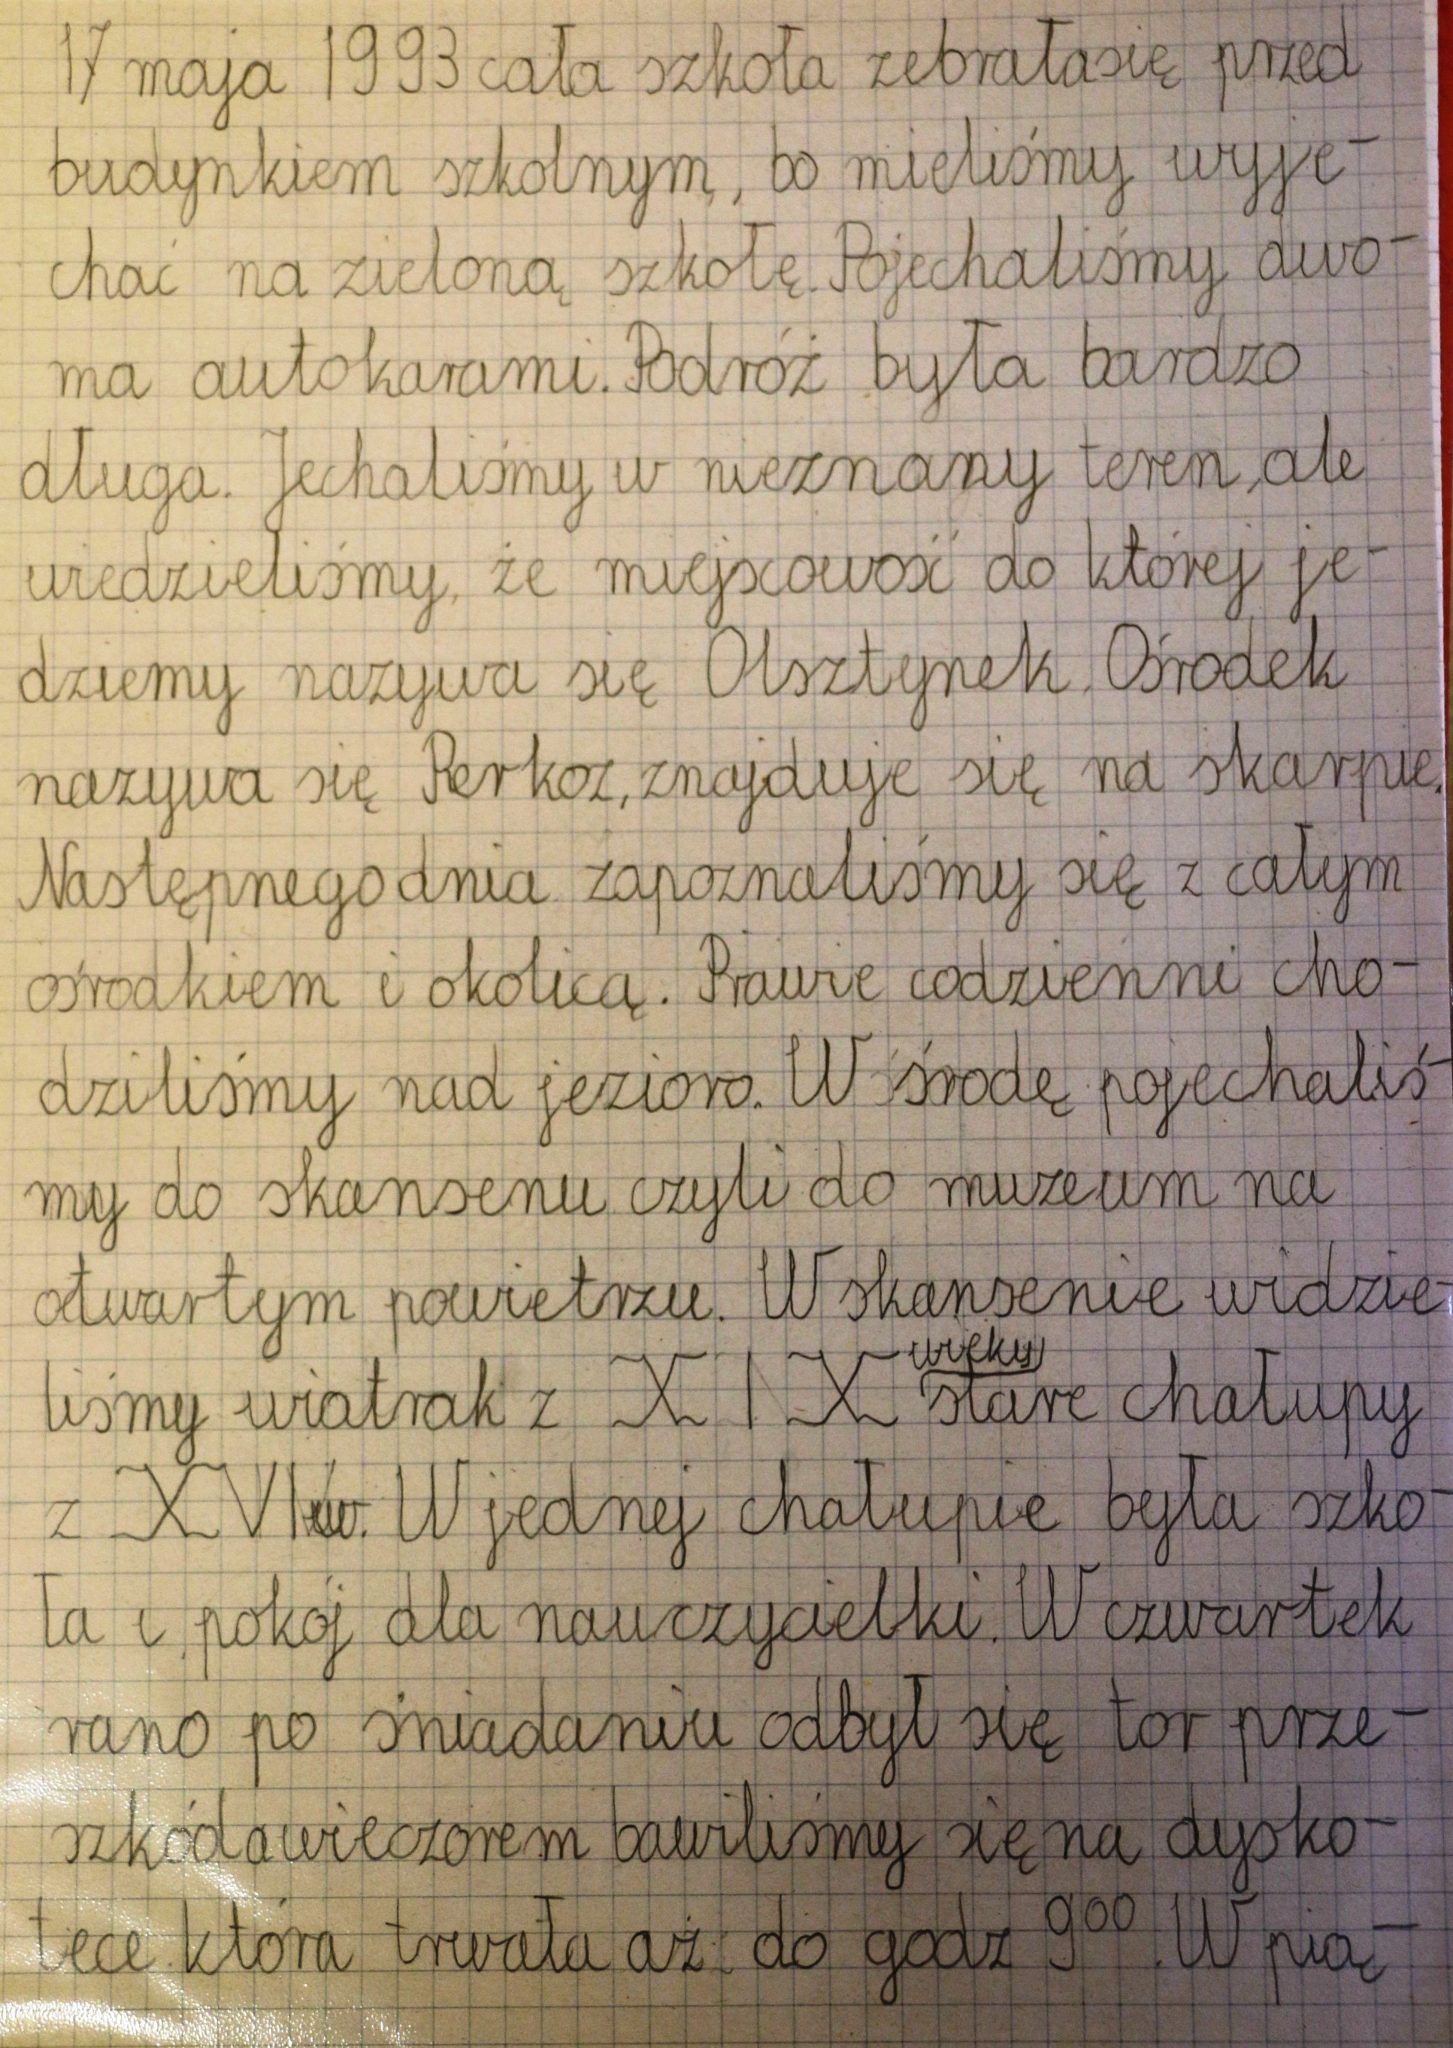 17 maja 1993 cała szkoła zebrałasię przed
budynkiem szkolnym, bo mieliśmy wyje-
chać na zieloną szkołę. Pojechaliśmy dwo-
ma autokarami. Podróż była bardzo
długa. Jechaliśmy w nieznany teren, ale
wiedzieliśmy, że miejscowość do której je-
dziemy nazywa się Olsztynek. Ośrodek
nazywa się Perkoz, znajduje się na skarpie.
Następnego dnia zapoznaliśmy się z całym
ośrodkiem i okolicą. Prawie codzienni cho-
dziliśmy nad jezioro. W środę pojechaliś-
my do skansenu czyli do muzeum na
otwartym powietrzu. W skansenie widzie-
wieku
liśmy wiatrak z XIX stare chałupy
z XVI w. W jednej chałupie była szko-
ła i pokój dla nauczycielki. W czwartek
rano po śniadaniu odbył się tor prze-
szkód a wieczorem bawiliśmy się na dysko-
tece która trwała aż do godz 9⁰⁰. W pią-